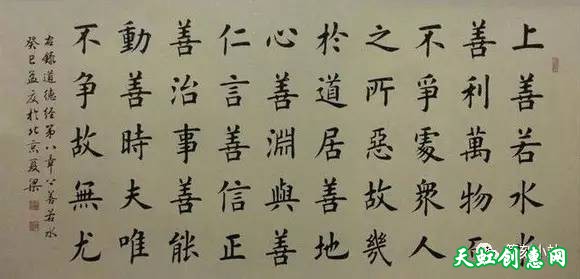 上善若水水
善利萬物而
不爭處衆人
之所惡故幾
於道居善地
心善淵與善
仁言善信正
善治事善能
動善時夫唯
不争故無尤
右錄道德经第八章上善若水
癸巳孟夏於北京夏梁
天虹创意网